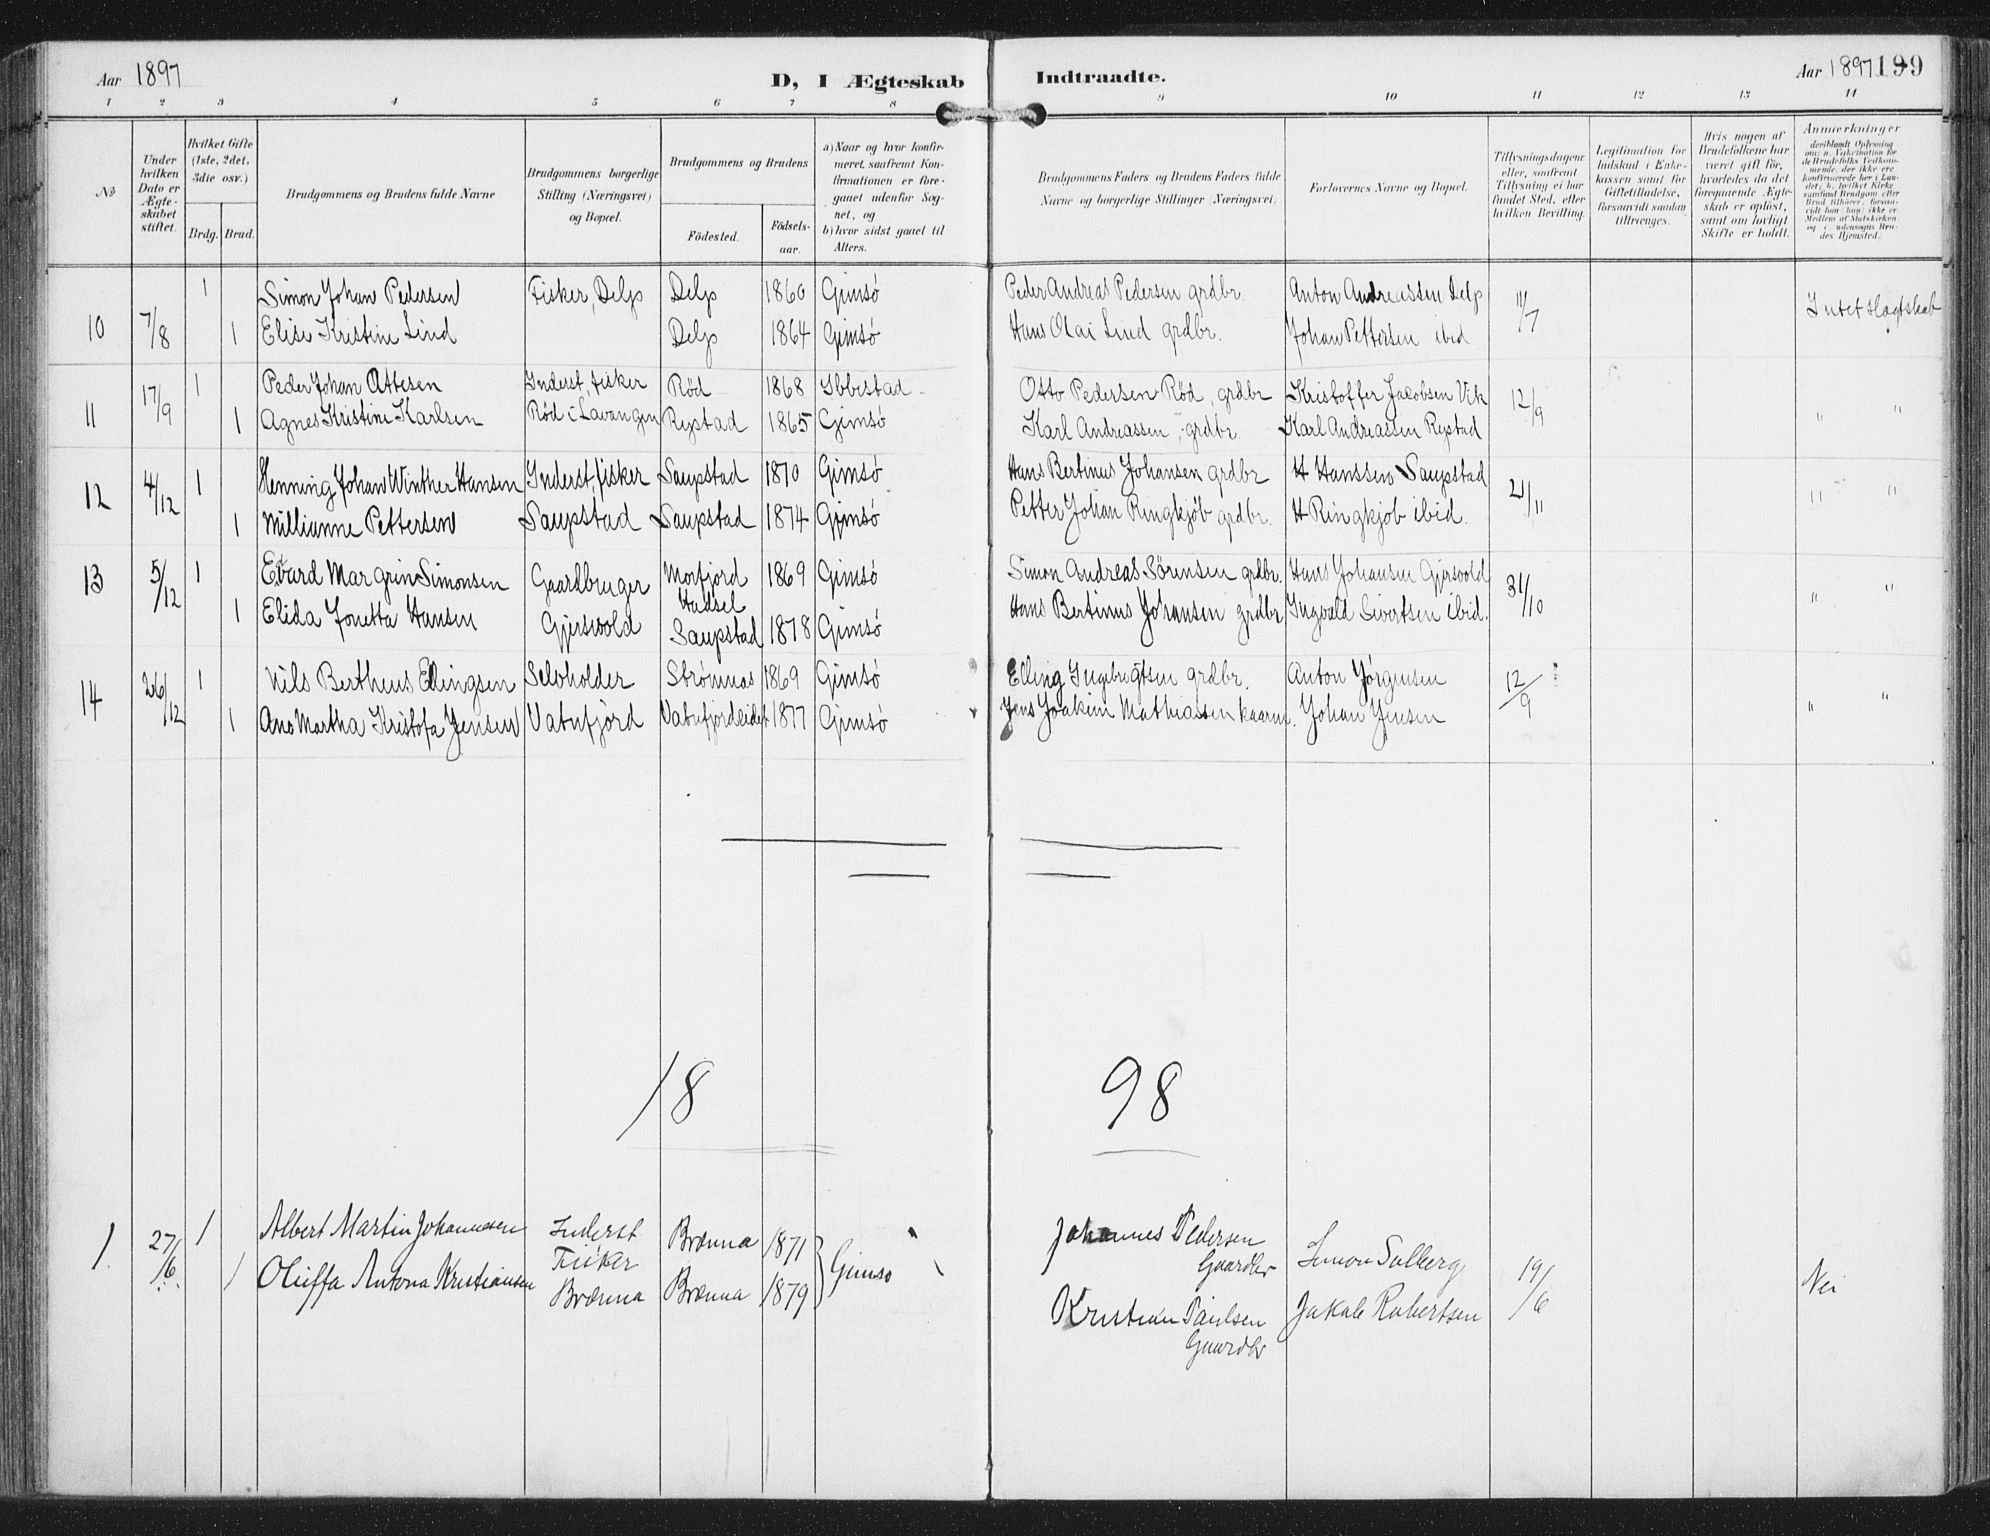 Aar 1897
D, I Ægteskab Indtraadte.
Aar 1897 199
1 2 3 4 5 6 7 8 9 10 11 12 13 14
No
Under hvilken Dato er Ægteskabet stiftet.
Hvilket Gifte (1ste, 2det, 3die osv.)
Brdg. Brud.
Brudgommens og Brudens fulde Navne
Brudgommens borgerlige Stilling (Næringsvei) og Bopæl.
Brudgommens og Brudens
Födested. Födselsaar.
a) Naar og hvor konfirmeret, saafremt Konfirmationen er foregaaet udenfor Sognet, og
b) hvor sidst gaaet til Alters.
Brudgommens Faders og Brudens Faders fulde Navne og borgerlige Stillinger (Næringsvei)
Forlovernes Navne og Bopæl.
Tillysningsdagene eller, saafremt Tillysning ei har fundet Sted, efter hvilken Bevilling.
Legitimation for Indskud i Enkekassen samt for Giftetilladelse, forsaavidt saadan tiltrænges.
Hvis nogen af Brudefolkene har været gift för, hvorledes da det foregaaende Ægteskab er oplöst, samt om lovligt Skifte er holdt.
Anmærkninger
deriblandt Oplysning om: a. Vakcination for de Brudefolks Vedkommende, der ikke ere konfirmerede her i Landet; b. hvilket Kirkesamfund Brudgom eller Brud tilhörer, forsaavidt han (hun) ikke er Medlem af Statskirken, og c. udensogns Brudes Hjemsted.)
10 7/8 1 Simon Johan Pedersen Fisker, Delp Delp 1860 Gimsö Peder Andreas Pedersen grdbr. Anton Andreassen Delp 11/7 Intet slægtskab
1 Elise Kristine Lind Delp 1864 Gimsö Hans Olai Lind grdbr. Johan Pettersen ibid
11 17/9 1 Peder Johan Ottesen Inderst, fisker Röd 1868 Ibbestad Otto Pedersen Röd, grdbr Kristoffer Jacobsen Vik 12/9 " "
1 Agnes Kristine Karlsen Röd i Lavangen Rystad 1865 Gimsö Karl Andreassen, grdbr. Karl Andreassen Rystad
12 4/12 1 Henning Johan Winther Hansen Inderst, fisker Saupstad 1870 Gimsö Hans Bertinus Johansen grdbr H Hanssen Saupstad 21/11 " "
1 Millianne Pettersen Saupstad Saupstad 1874 Gimsö Petter Johan Ringkjöb grdbr. H Ringkjöb ibid.
13 5/12 1 Evard Margrin Simonsen Gaardbruger Morfjord Hadsel 1869 Gimsö Simon Andreas Sörensen grdbr. Hans Johansen Gjersvold 31/10 " "
1 Elida Jonetta Hansen Gjersvold Saupstad 1878 Gimsö Hans Bertinus Johansen grdbr Ingvald Sivertsen ibid.
14 26/12 1 Nils Bertheus Ellingsen Selvholder Strömnas 1869 Gimsö Elling Ingebrigtsen grdbr. Anton Jörgensen 12/9 " "
1 Ane Martha Kristofa Jensen Vatnfjord Vatnfjordeidet 1877 Gimsö Jens Joakim Mathiassen kaarm. Johan Jensen
18 98
1. 27/6. 1 Albert Martin Johannesen Inderst Fisker Brænna 1871 Gimsö Johannes Pedersen Gaardbr Simon Solberg 19/6 Nei
1 Oluffa Antona Kristiansen Brænna Brænna 1879 Kristian Paulsen Gaardbr Jakob Robertsen